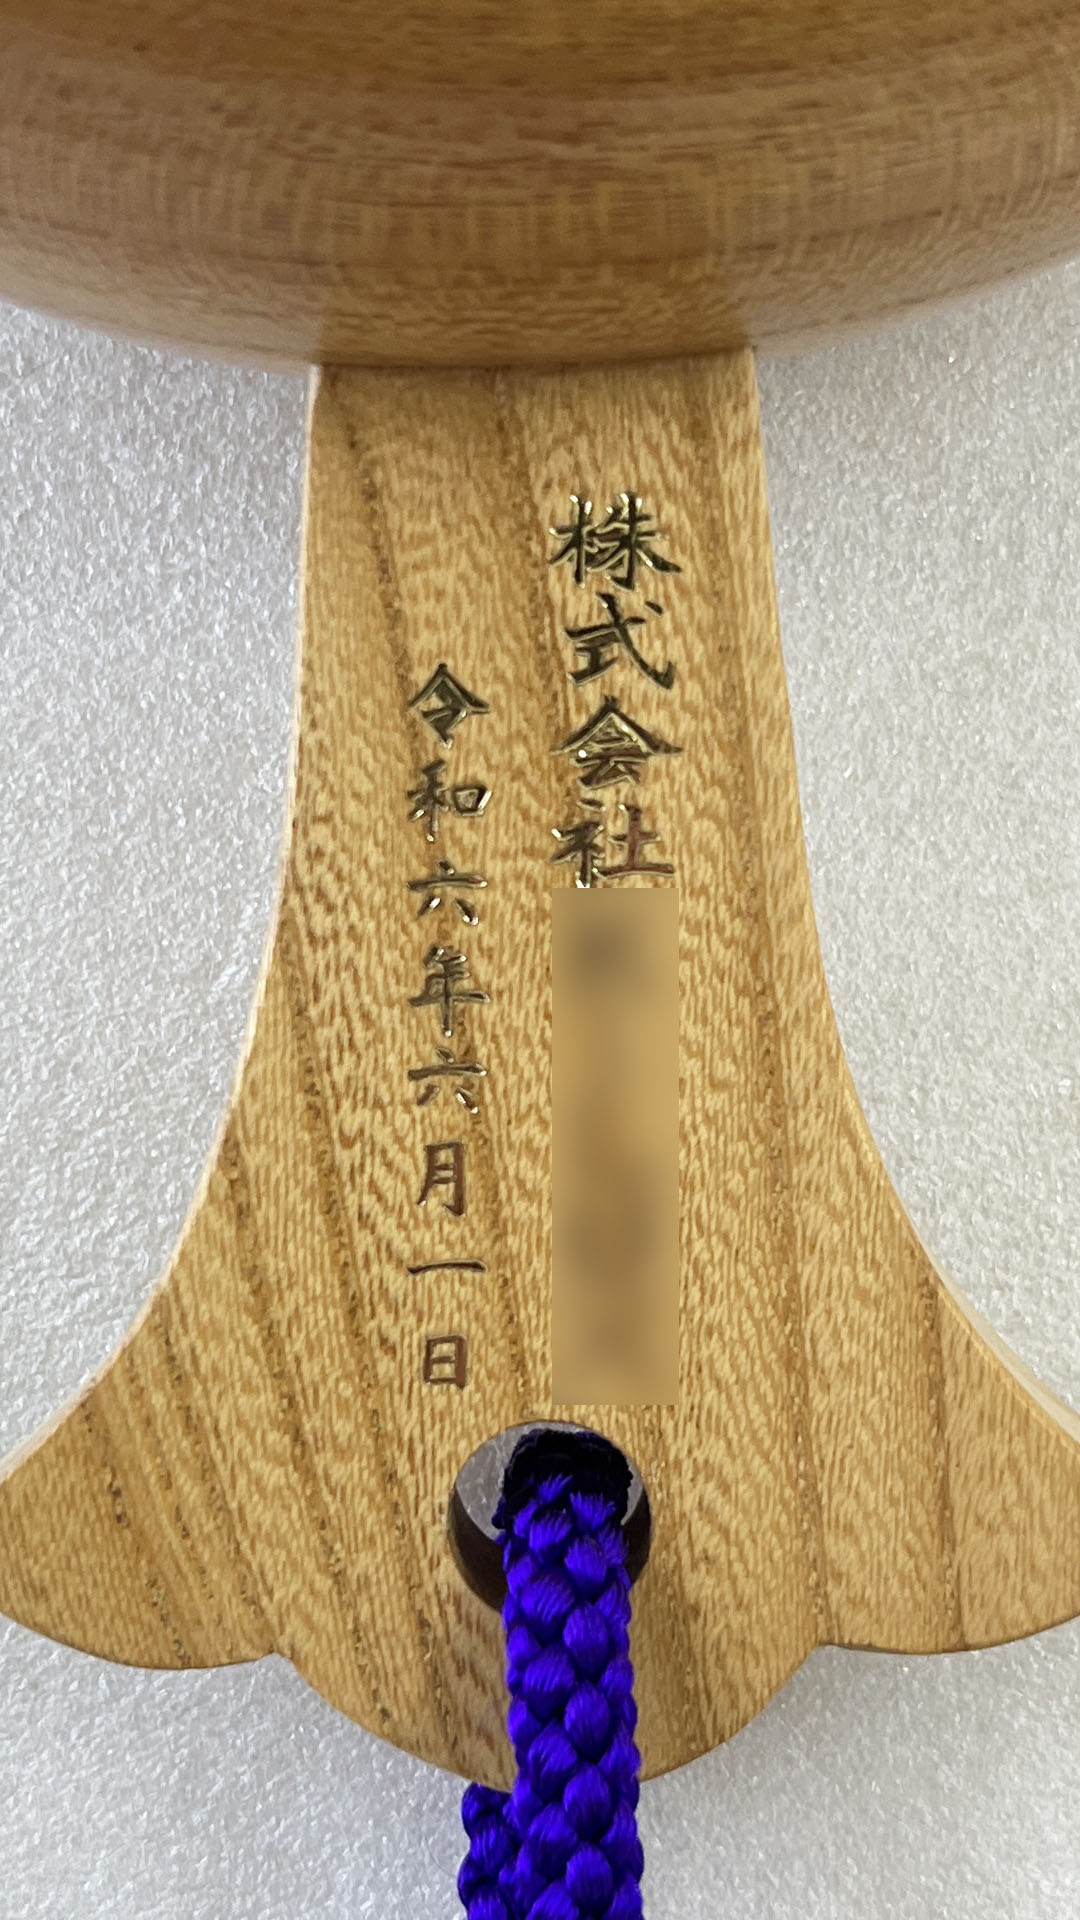 株式会社
令和六年六月一日